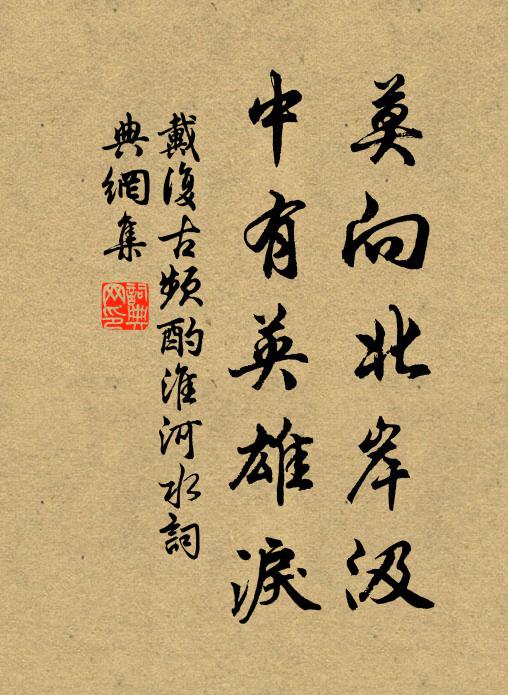 莫向北岸汲
中有英雄淚
戴復古頻酌淮河水詞
典網集
詞典
网印